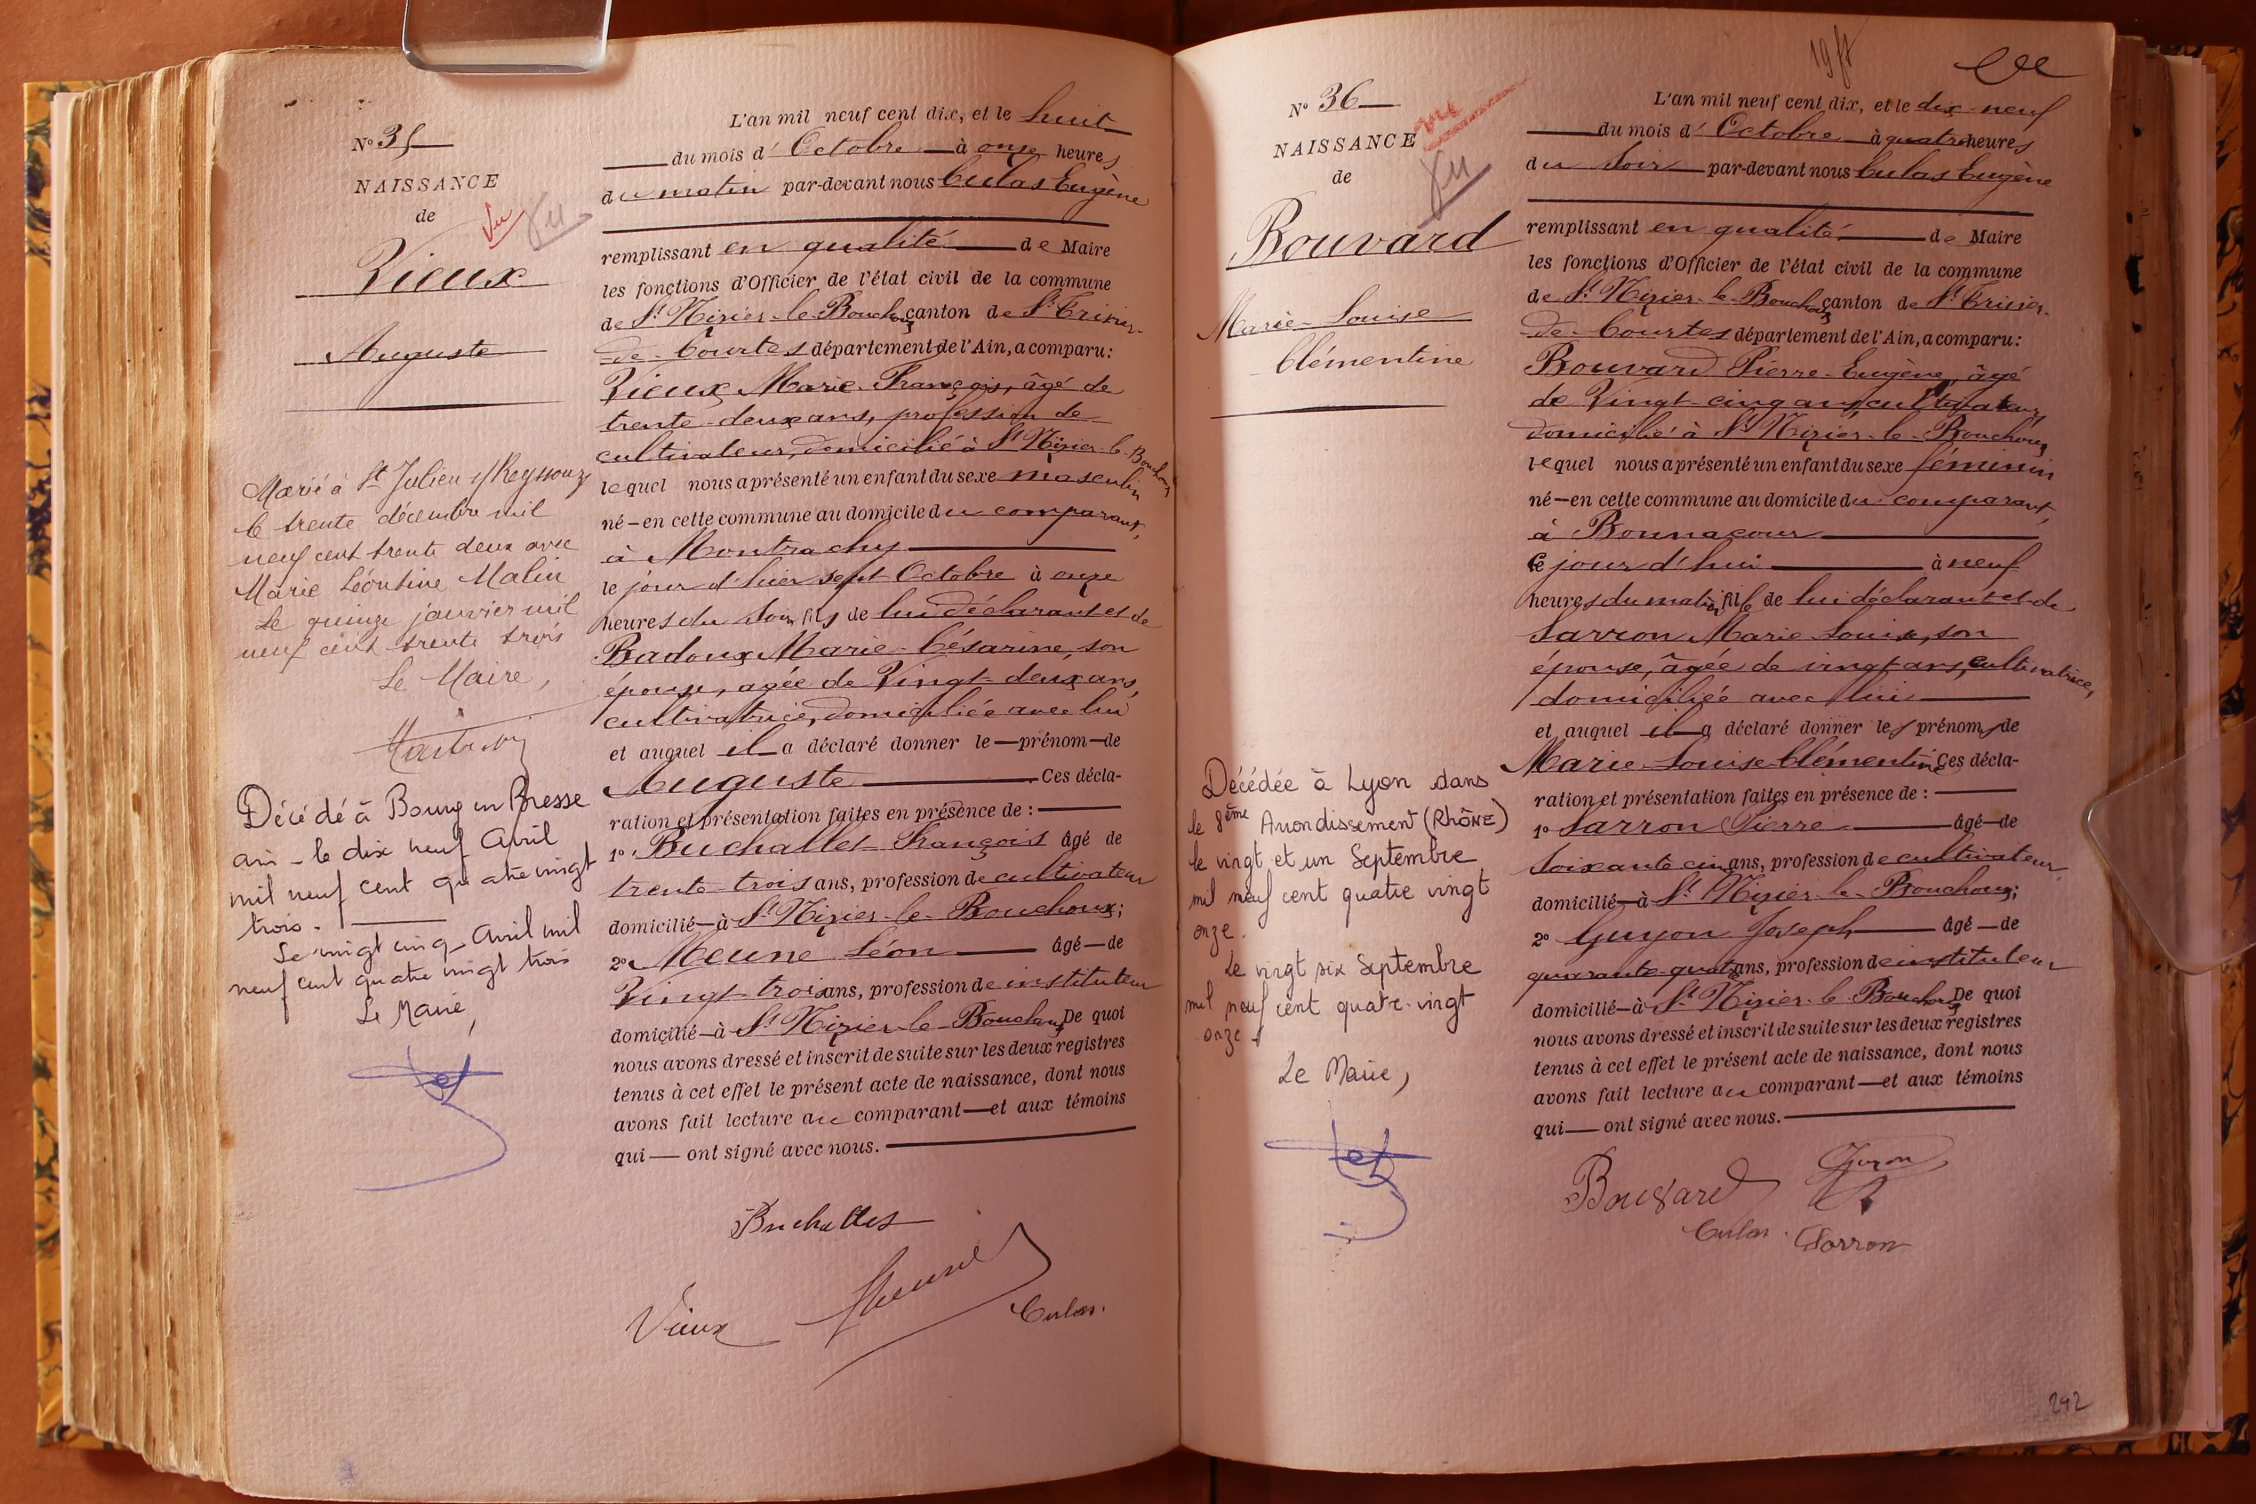 N° 35
NAISSANCE
de
Vu
Vu
Vieux
Auguste
Marié à St Julien s/Reyssouze
le trente décembre mil
neuf cent trente deux avec
Marie Léontine Malin
Le quinze janvier mil
neuf cent trente trois
Le Maire,
Décédé à Bourg en Bresse
ain - le dix neuf Avril
mil neuf cent quatre vingt
trois.
Le vingt cinq Avril mil
neuf cent quatre vingt trois
Le Maire,
L'an mil neuf cent dix, et le huit
du mois d'Octobre à onze heures
du matin par-devant nous Culas Eugène
remplissant en qualité de Maire
les fonctions d'Officier de l'état civil de la commune
de St Nizier-le-Bouchoux canton de St Trivier-
de-Courtes département de l'Ain, a comparu:
Vieux Marie-François, âgé de
trente-deux ans, profession de
cultivateur, domicilié à St Nizier-le-Bouchoux
lequel nous a présenté un enfant du sexe masculin
né - en cette commune au domicile du comparant,
à Montrachy
le jour d'hier sept Octobre à onze
heures du soir fils de lui déclarant et de
Badoux Marie-Césarine, son
épouse, agée de Vingt-deux ans,
cultivatrice, domiciliée avec lui
et auquel il a déclaré donner le - prénom - de
Auguste Ces décla-
ration et présentation faites en présence de :
1° Buchallet François âgé de
trente-trois ans, profession de cultivateur
domicilié - à St Nizier-le-Bouchoux;
2° Meune Léon âgé - de
Vingt-trois ans, profession de instituteur
domicilié - à St Nizier-le-Bouchoux De quoi
nous avons dressé et inscrit de suite sur les deux registres
tenus à cet effet le présent acte de naissance, dont nous
avons fait lecture au comparant - et aux témoins
qui - ont signé avec nous.
Buchallet
Vieux
Meune
Culas.
N° 36
NAISSANCE
de
Vu
Bouvard
Marie-Louise
Clémentine
Décédée à Lyon dans
le 8ème Arrondissement (RhôNE)
le vingt et un Septembre
mil neuf cent quatre vingt
onze.
Le vingt six Septembre
mil neuf cent quatre-vingt
onze
Le Maire,
L'an mil neuf cent dix, et le dix-neuf
du mois d'Octobre à quatre heures
du soir par-devant nous Culas Eugène
remplissant en qualité de Maire
les fonctions d'Officier de l'état civil de la commune
de St Nizier-le-Bouchoux canton de St Trivier-
de-Courtes département de l'Ain, a comparu:
Bouvard Pierre-Eugène, âgé
de Vingt-cinq ans, cultivateur,
domicilié à St Nizier-le-Bouchoux
lequel nous a présenté un enfant du sexe féminin
né - en cette commune au domicile du comparant,
à Bonnacour
Ce jour d'hui à neuf
heures du matin fille de lui déclarant et de
Sarron Marie Louise, son
épouse, âgée de vingt ans, cultivatrice,
domiciliée avec lui
et auquel il a déclaré donner les prénoms de
Marie-Louise-Clémentine Ces décla-
ration et présentation faites en présence de :
1° Sarron Pierre âgé - de
soixante-cinq ans, profession de cultivateur
domicilié - à St Nizier-le-Bouchoux;
2° Guyon Joseph âgé - de
quarante-quatre ans, profession de instituteur
domicilié - à St Nizier-le-Bouchoux De quoi
nous avons dressé et inscrit de suite sur les deux registres
tenus à cet effet le présent acte de naissance, dont nous
avons fait lecture au comparant - et aux témoins
qui - ont signé avec nous.
Bouvard
Guyon
Culas.
Sarron
242